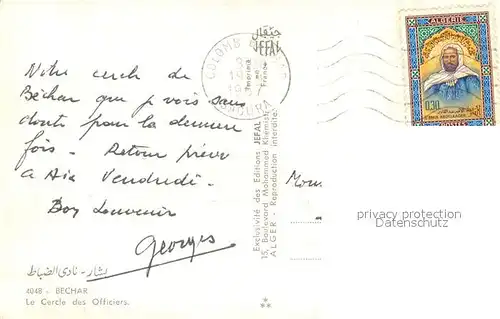 Notre cercle de
Béchar que je vois sans
doute pour la dernière
fois - Retour prévu
à Aïn Vendredi.
Bon Souvenir
Georges
بشار - نادي الضباط
4048 - BECHAR
Le Cercle des Officiers.
Exclusivité des Editions JEFAL
15, Boulevard Mohammed Khemisti
ALGER - Reproduction interdite.
جيفال
JEFAL
Imprimé
en
France
COLOMB
ALGERIE
0,30
EMIR ABDELKADER
POSTES
Mon
privacy protection
Datenschutz